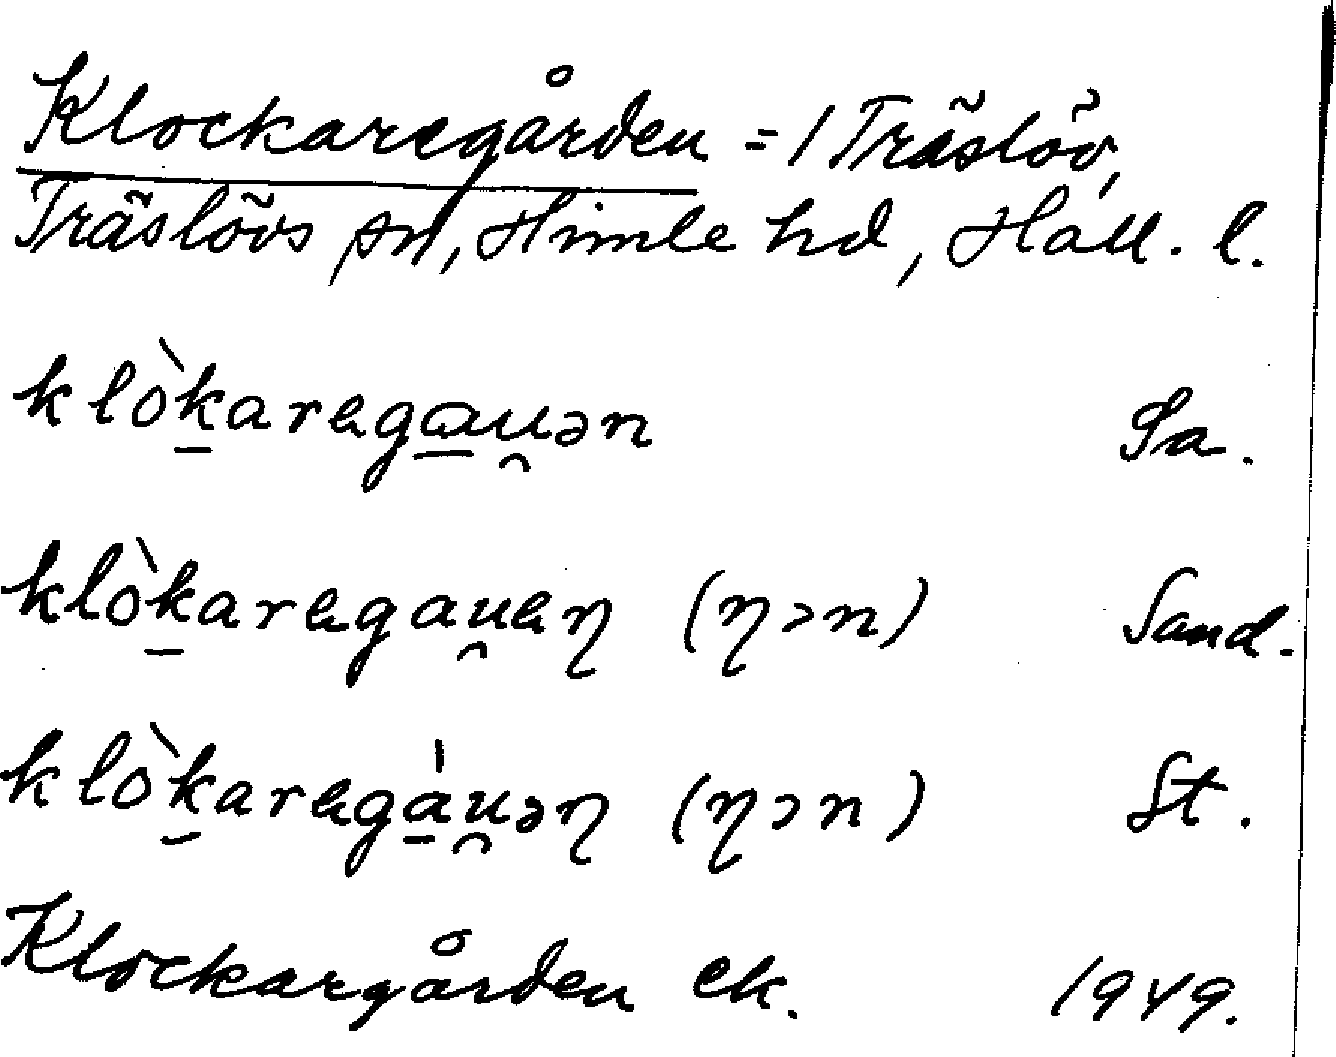 Klockaregården = 1 Träslöv,
Träslövs sn, Himle hd, Hall. l.
klòk̠arega̠u̯ən Sa.
klòk̠aregau̯eη (ηɔn) Sand.
klòk̠aregà̠u̯əη (ηɔn) St.
Klockargården ek. 1949.